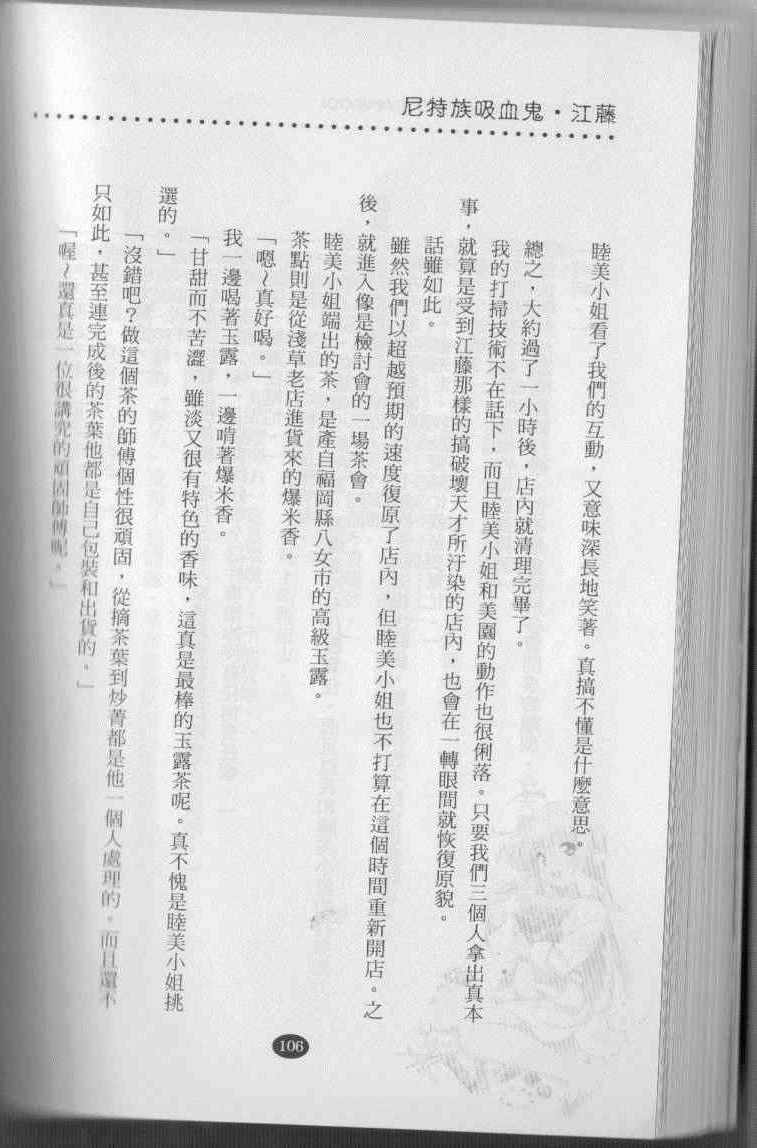 尼特族吸血鬼・江藤
睦美小姐看了我們的互動，又意味深長地笑著。真搞不懂是什麼意思。
總之，大約過了一小時後，店內就清理完畢了。
我的打掃技術不在話下，而且睦美小姐和美園的動作也很俐落。只要我們三個人拿出真本
事，就算是受到江藤那樣的搞破壞天才所汙染的店內，也會在一轉眼間就恢復原貌。
話雖如此。
雖然我們以超越預期的速度復原了店內，但睦美小姐也不打算在這個時間重新開店。之
後，就進入像是檢討會的一場茶會。
睦美小姐端出的茶，是產自福岡縣八女市的高級玉露。
茶點則是從淺草老店進貨來的爆米香。
「嗯～真好喝。」
我一邊喝著玉露，一邊啃著爆米香。
「甘甜而不苦澀，雖淡又很有特色的香味，這真是最棒的玉露茶呢。真不愧是睦美小姐挑
選的。」
「沒錯吧？做這個茶的師傅個性很頑固，從摘茶葉到炒菁都是他一個人處理的。而且還不
只如此，甚至連完成後的茶葉他都是自己包裝和出貨的。」
「喔～還真是一位很講究的頑固師傅呢。」
106